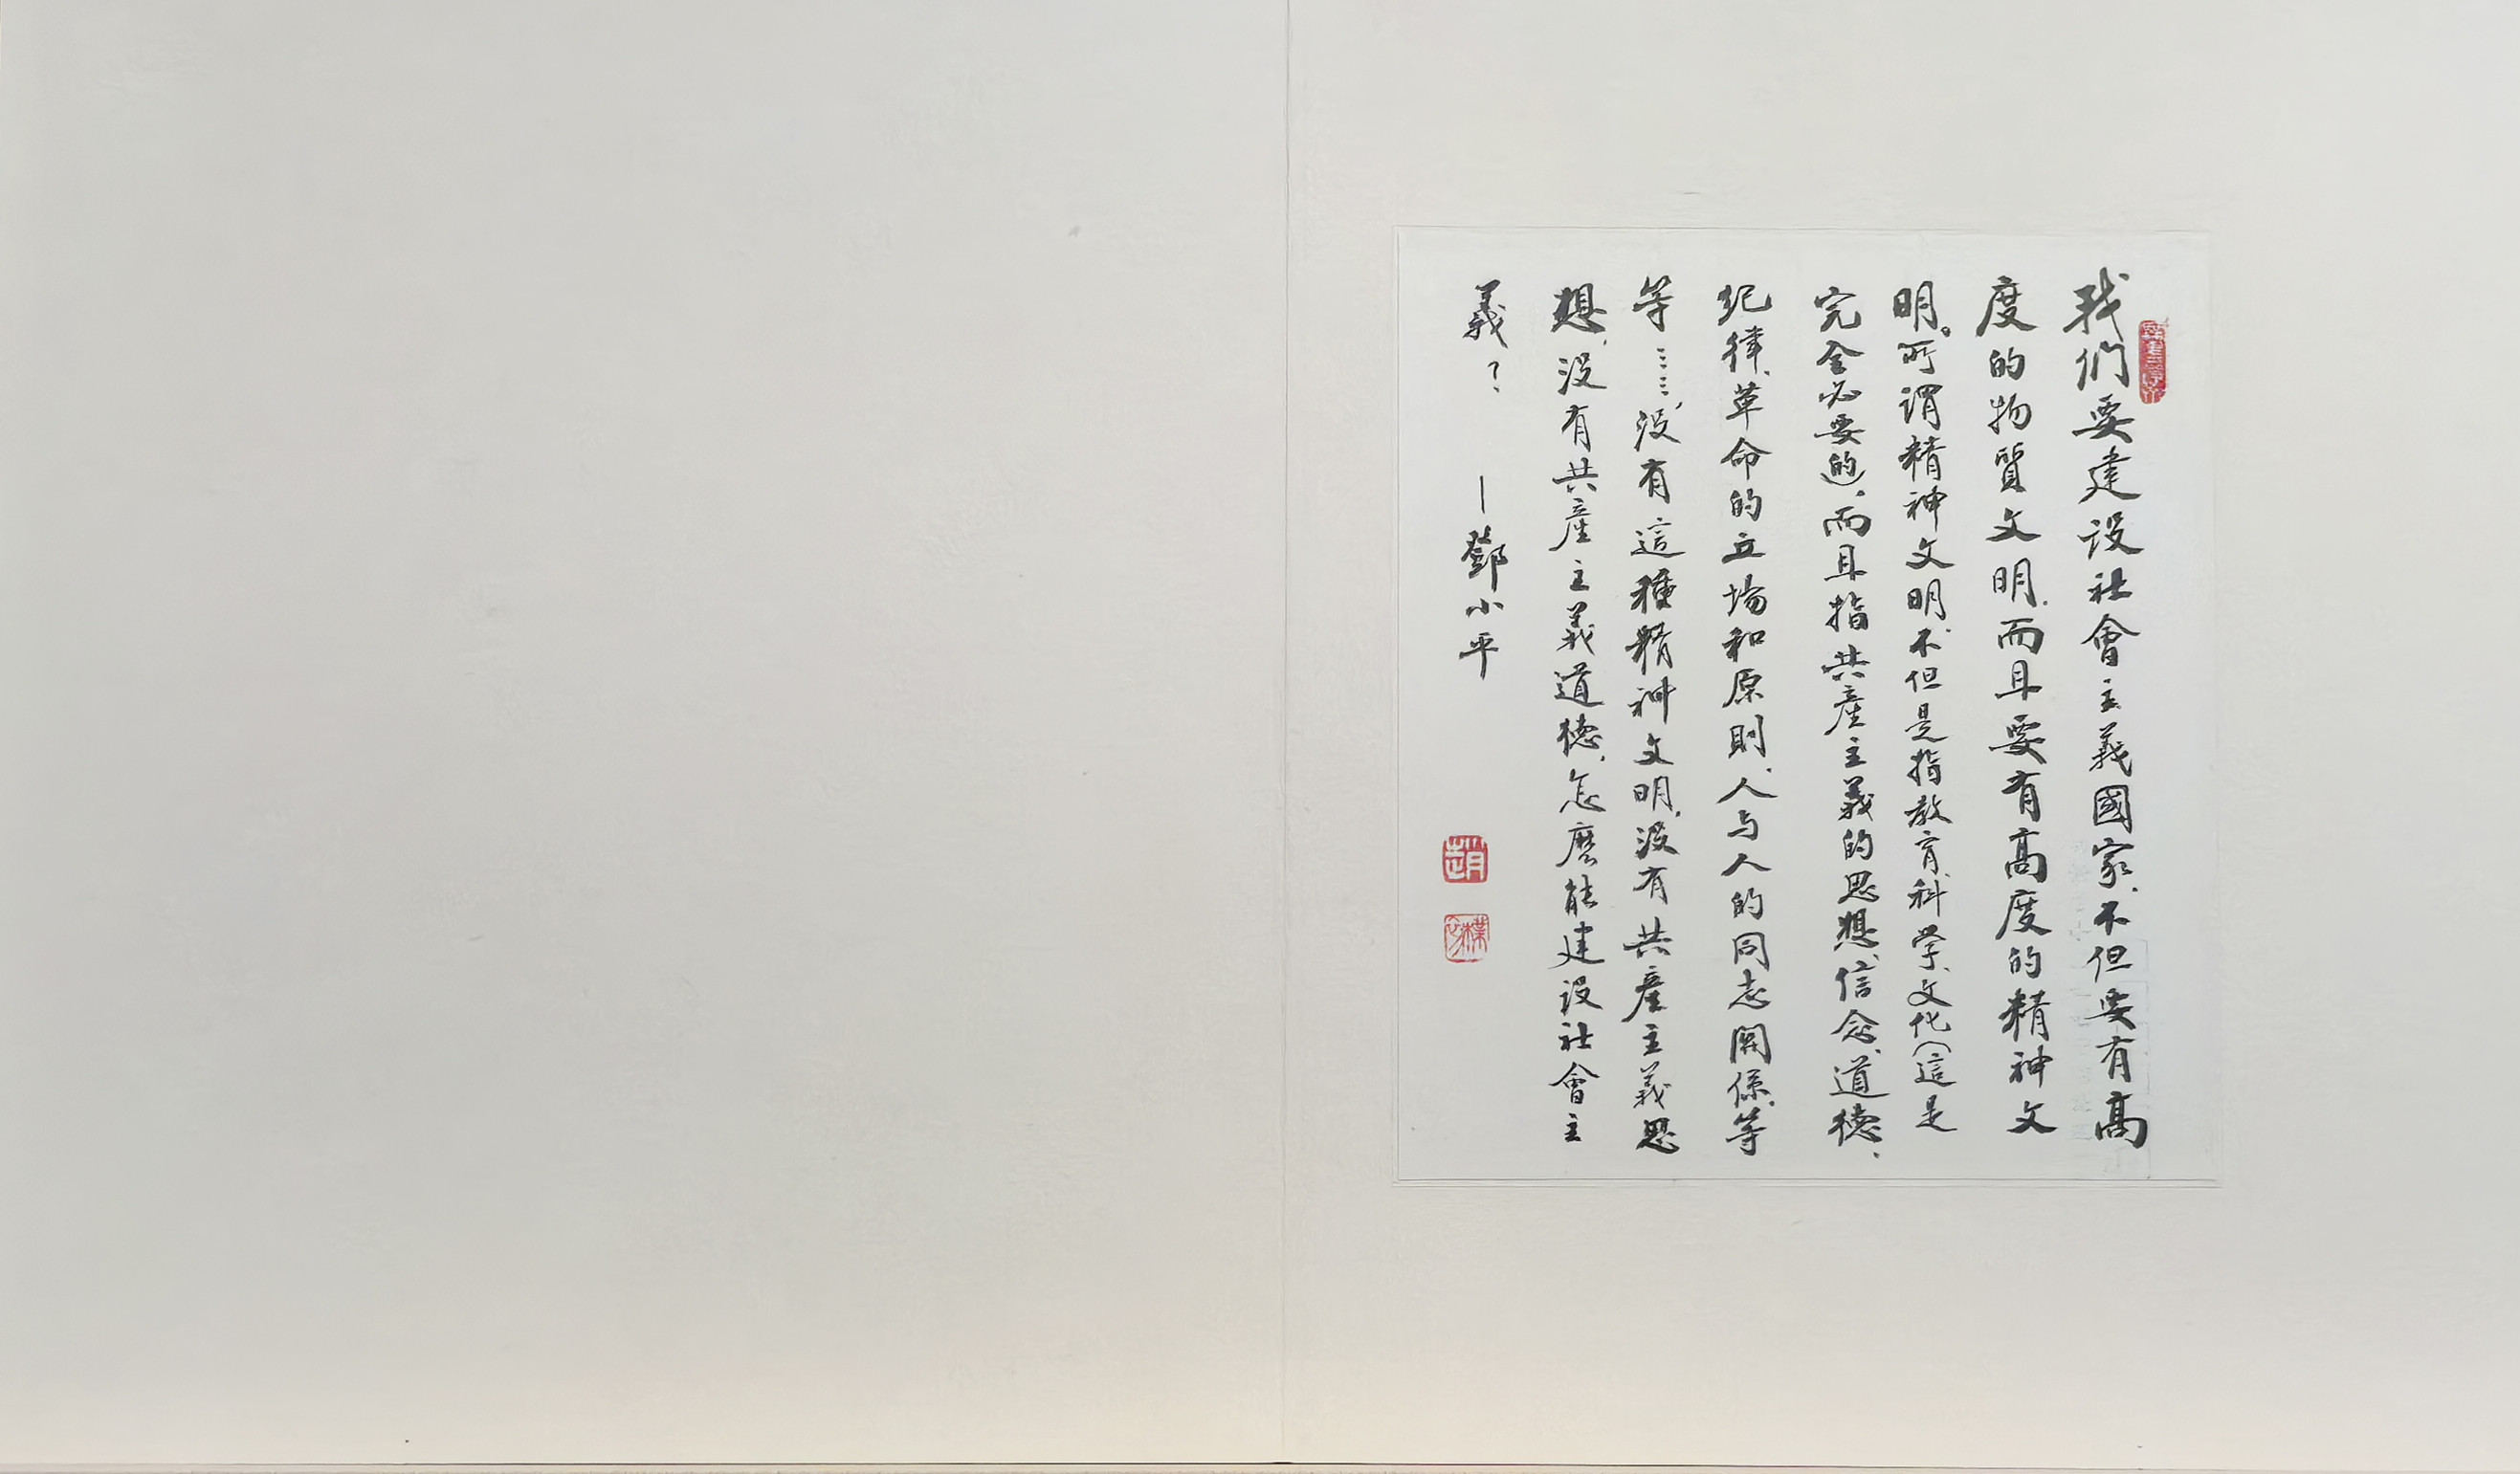 我们要建设社會主義國家、不但要有高
度的物質文明、而且要有高度的精神文
明。所謂精神文明、不但是指教育、科学、文化（這是
完全必要的、而且指共產主義的思想、信念、道德、
纪律、革命的立場和原則、人与人的同志関係、等
等……、没有這種精神文明、没有共產主義思
想、没有共產主義道德、怎麽能建设社會主
義？
—鄧小平
趙
樸初